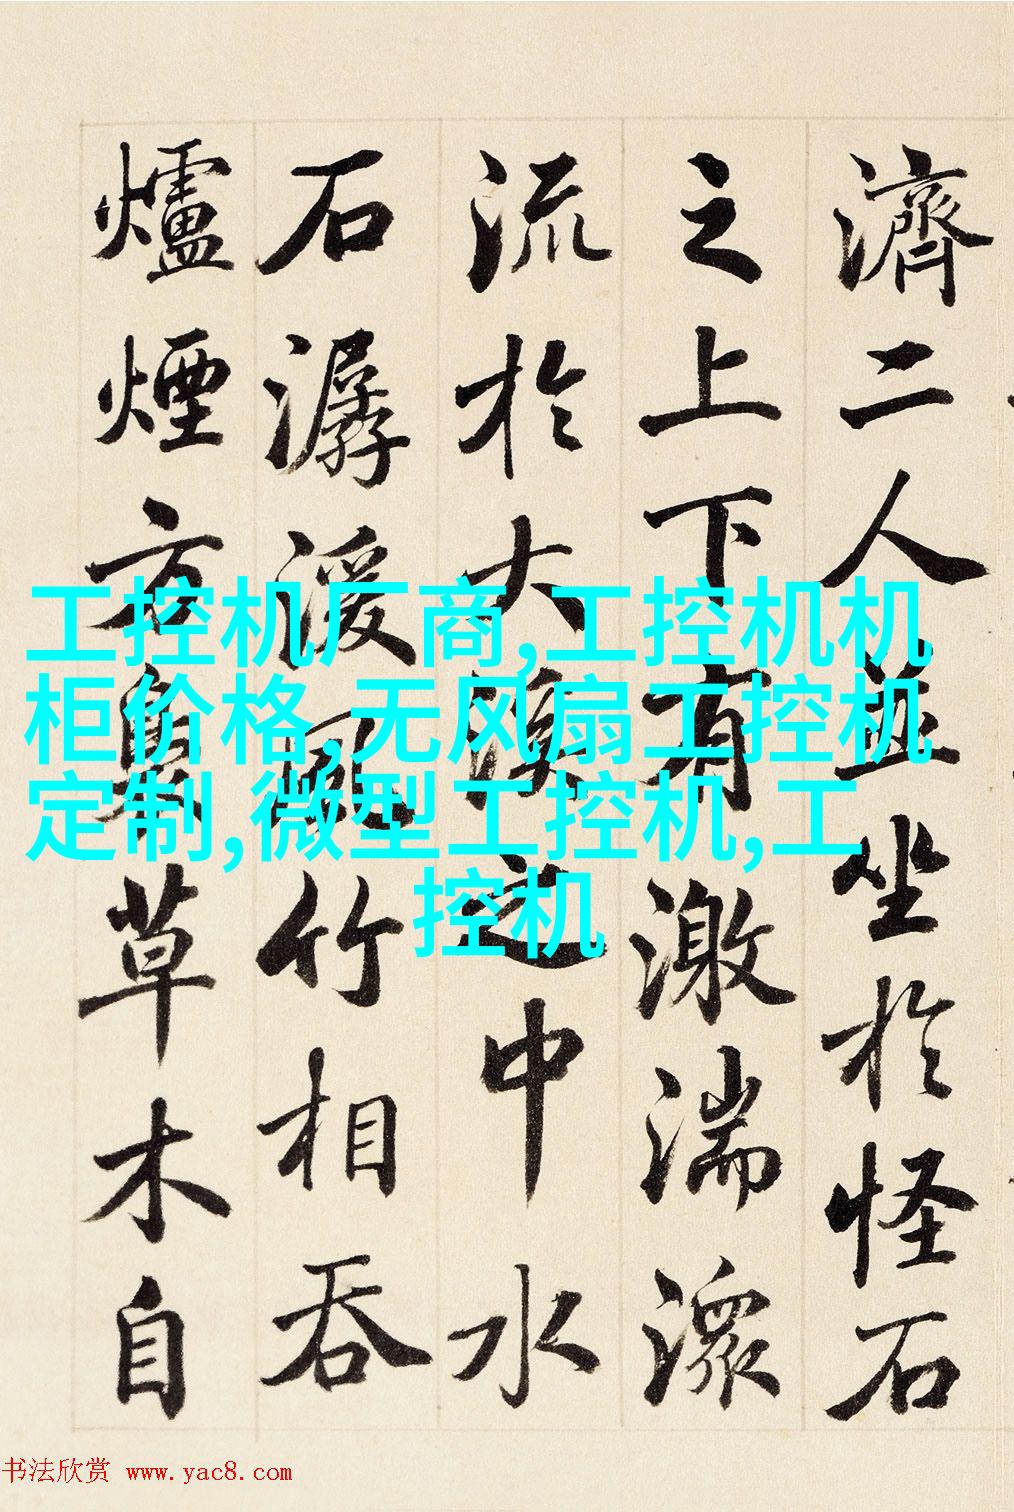 濟二人並坐於怪石
之上下有激湍潀
流於大溪之中水
石潺湲風竹相吞
爐煙方裊草木自
工控机厂商,工控机机
柜价格,无风扇工控机
定制,微型工控机,工
控机
书法欣赏 www.yac8.com